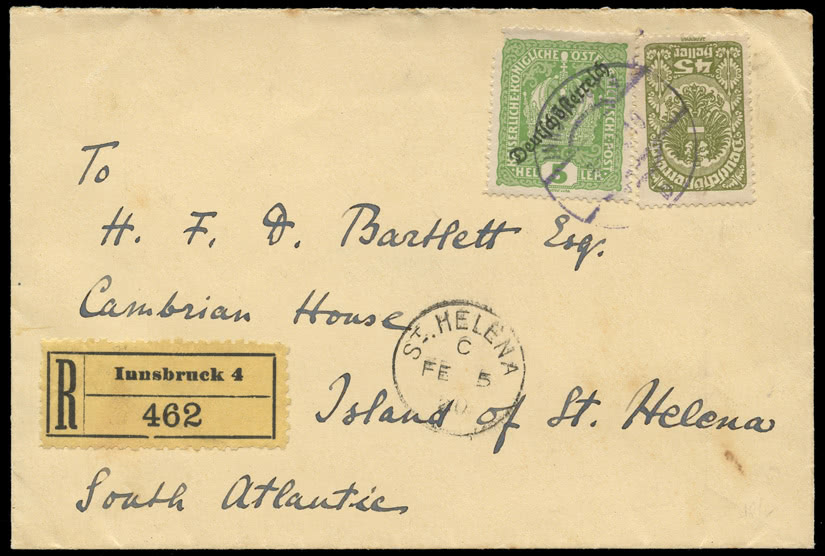 KAISERLICHE KÖNIGLICHE ÖST
Deutschösterreich
5
45
heller
To
H. F. D. Bartlett Esq.
Cambrian House
ST. HELENA
C
FE 5
20
R
Innsbruck 4
462
Island of St. Helena
South Atlantic